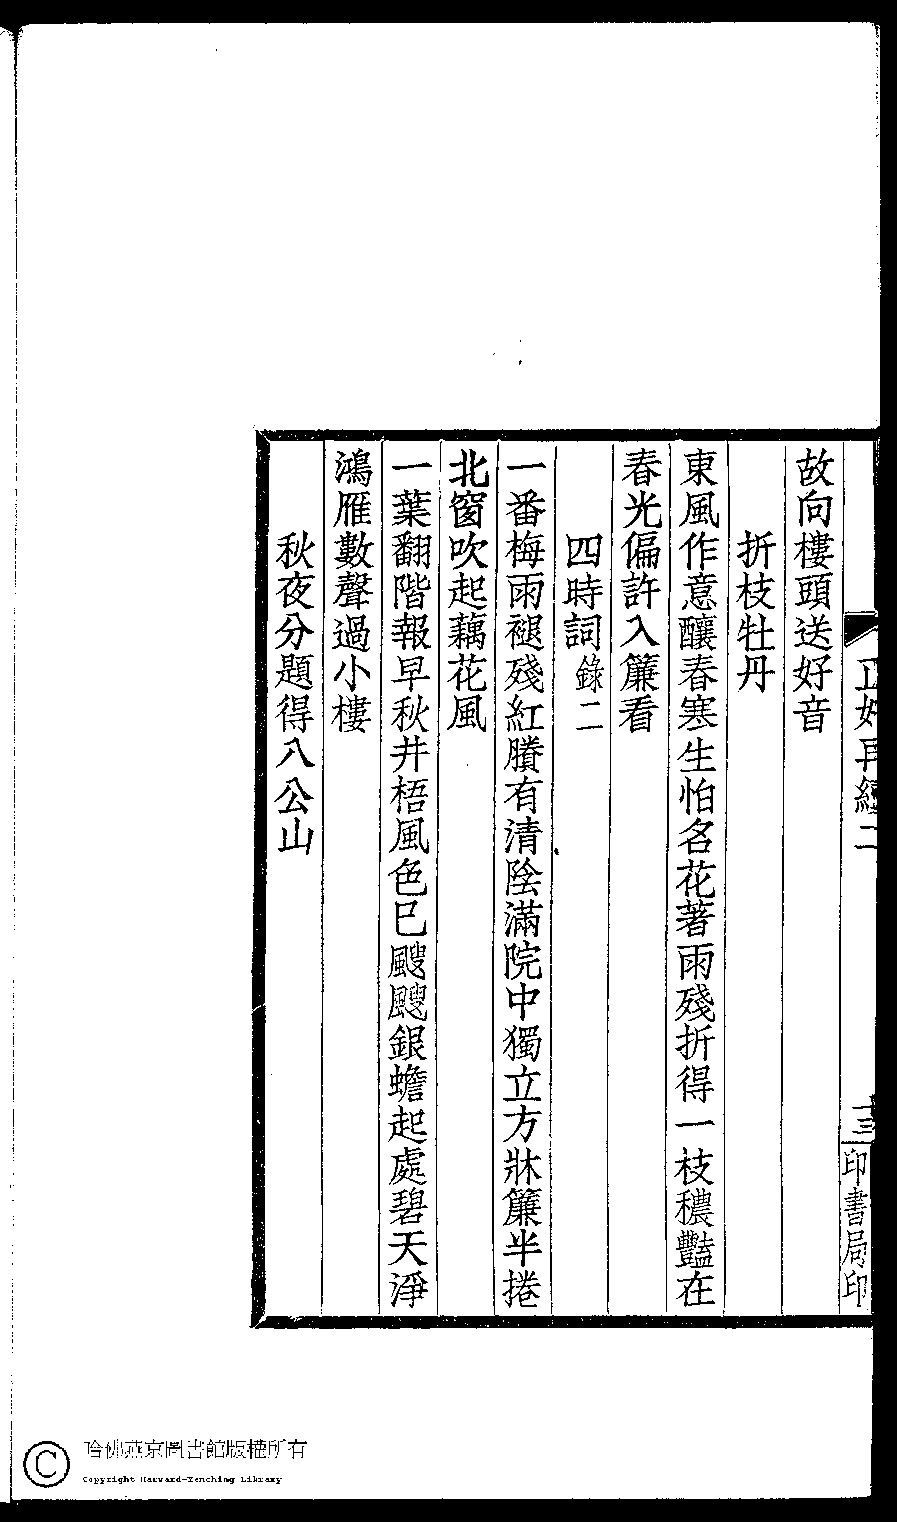 正始再續二
十三
印書局印
故向樓頭送好音
折枝牡丹
東風作意釀春寒生怕名花著雨殘折得一枝穠豔在
春光偏許入簾看
四時詞錄二
一番梅雨褪殘紅賸有清陰滿院中獨立方牀簾半捲
北窗吹起藕花風
一葉翻階報早秋井梧風色已颼颼銀蟾起處碧天淨
鴻雁數聲過小樓
秋夜分題得八公山
哈佛燕京圖書館版權所有
Copyright Harvard-Yenching Library